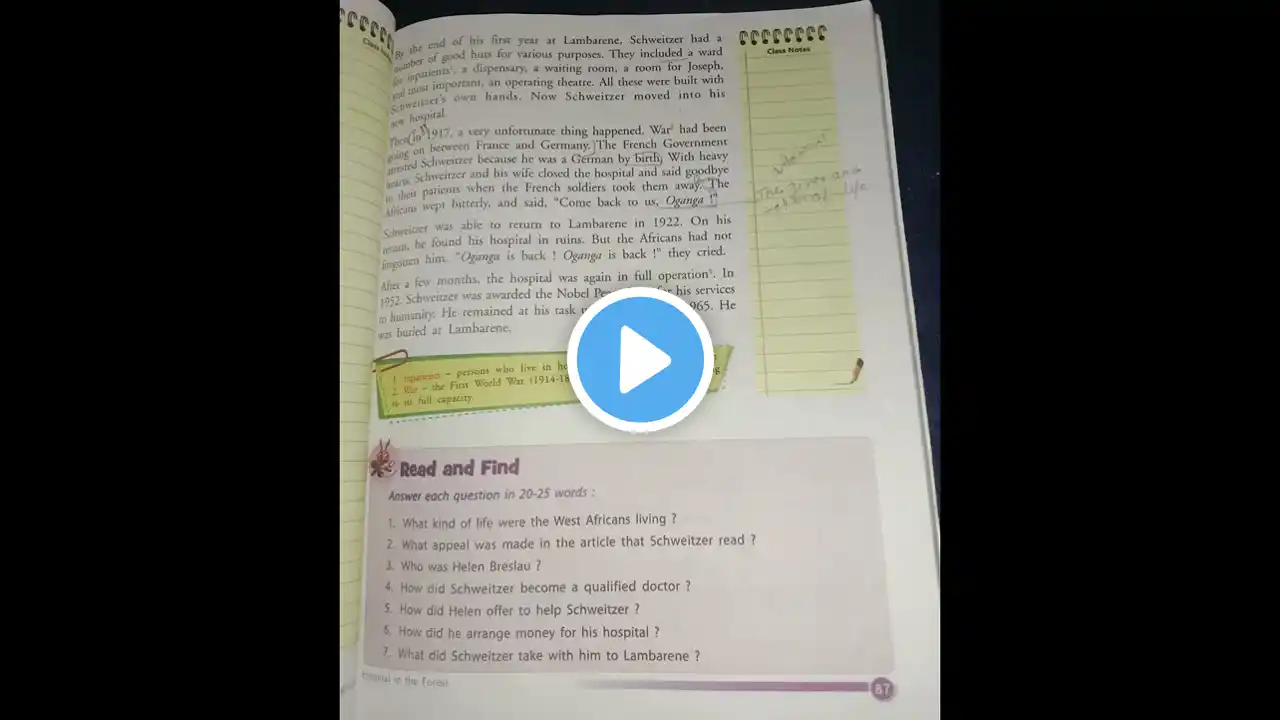 By the end of his first year at Lambarene, Schweitzer had a
number of good huts for various purposes. They included a ward
for inpatients¹, a dispensary, a waiting room, a room for Joseph,
and most important, an operating theatre. All these were built with
Schweitzer's own hands. Now Schweitzer moved into his
new hospital.
Then in 1917, a very unfortunate thing happened. War² had been
going on between France and Germany. The French Government
arrested Schweitzer because he was a German by birth. With heavy
hearts, Schweitzer and his wife closed the hospital and said goodbye
to their patients when the French soldiers took them away. The
Africans wept bitterly, and said, "Come back to us, Oganga !"
Schweitzer was able to return to Lambarene in 1922. On his
return, he found his hospital in ruins. But the Africans had not
forgotten him. "Oganga is back ! Oganga is back !" they cried.
After a few months, the hospital was again in full operation³. In
1952, Schweitzer was awarded the Nobel for his services
to humanity. He remained at his task 965. He
was buried at Lambarene.
1. inpatients – persons who live in
2. War – the First World War (1914-18
is in full capacity
Class Notes
Class Notes
The
life
Read and Find
Answer each question in 20-25 words :
1. What kind of life were the West Africans living ?
2. What appeal was made in the article that Schweitzer read ?
3. Who was Helen Breslau ?
4. How did Schweitzer become a qualified doctor ?
5. How did Helen offer to help Schweitzer ?
6. How did he arrange money for his hospital ?
7. What did Schweitzer take with him to Lambarene ?
Hospital in the Forest
87